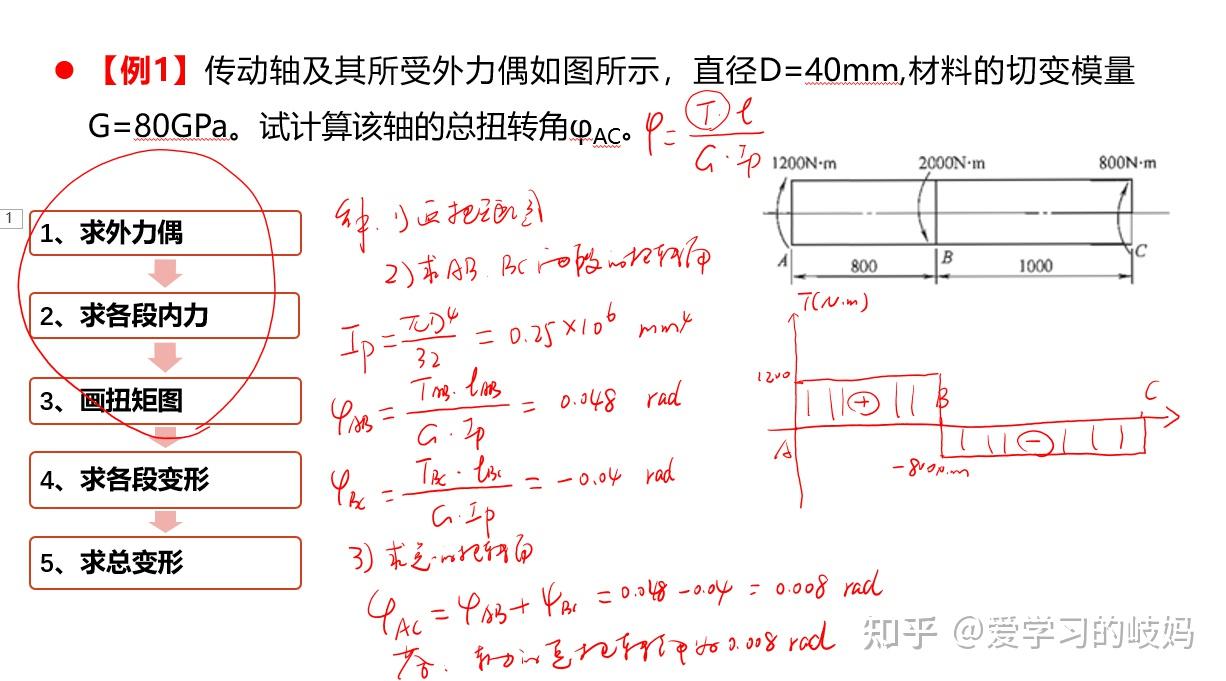 【例1】传动轴及其所受外力偶如图所示，直径D=40mm,材料的切变模量
G=80GPa。试计算该轴的总扭转角φAC。
φ=T·l/G·Ip
1200N·m 2000N·m 800N·m
A B C
800 1000
1
1、求外力偶
2、求各段内力
3、画扭矩图
4、求各段变形
5、求总变形
解：1)画扭矩图
2)求AB、BC两段的扭转角
Ip=πD⁴/32=0.25×10⁶ mm⁴
φAB=TAB·lAB/G·Ip=0.048 rad
φBC=TBC·lBC/G·Ip=-0.04 rad
3)求总的扭转角
φAC=φAB+φBC=0.048-0.04=0.008 rad
答：轴的总扭转角为0.008 rad
T(N·m)
1200
+
B
C
A
-
-800N.m
知乎 @爱学习的岐妈